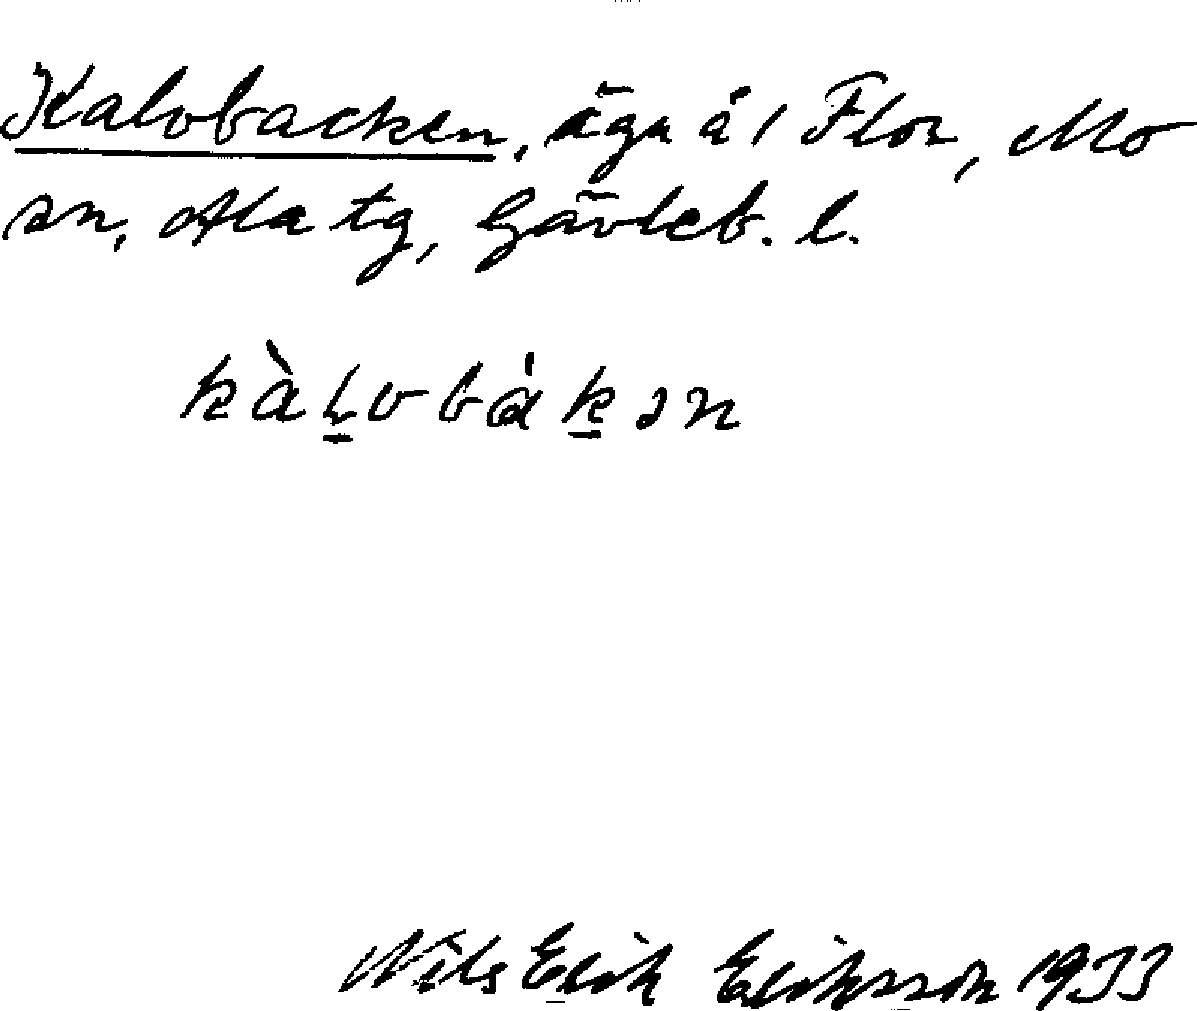 Kalvbacken, ägn å 1 Flor, Mo
sn, Ala tg, Gävleb. l.
kàl̠vbák̠ən
Nils Erik Eriksson 1933